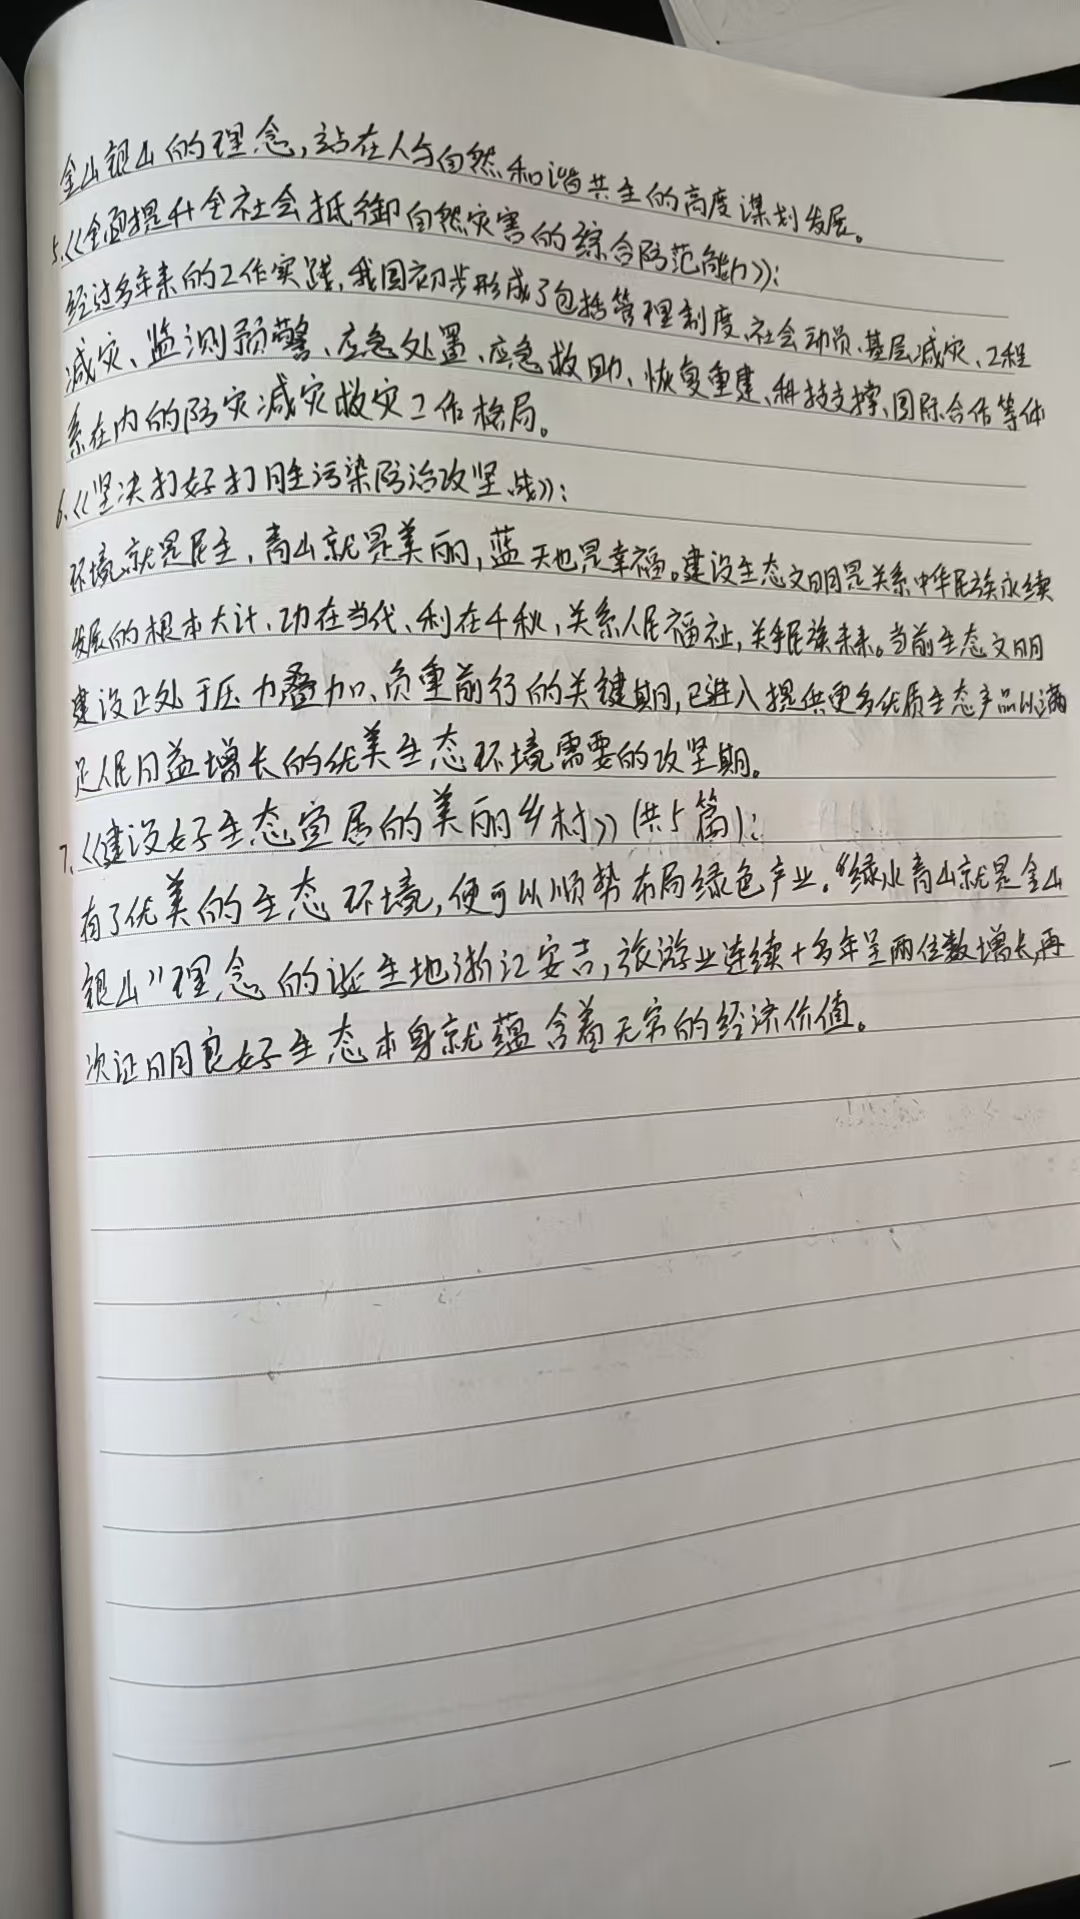 金山银山的理念，站在人与自然和谐共生的高度谋划发展。
5.《全面提升全社会抵御自然灾害的综合防范能力》：
经过多年来的工作实践，我国初步形成了包括管理制度、社会动员、基层减灾、工程
减灾、监测预警、应急处置、应急救助、恢复重建、科技支撑、国际合作等体
系在内的防灾减灾救灾工作格局。
6.《坚决打好打胜污染防治攻坚战》：
环境就是民生，青山就是美丽，蓝天也是幸福。建设生态文明是关系中华民族永续
发展的根本大计，功在当代、利在千秋，关系人民福祉，关乎民族未来。当前生态文明
建设正处于压力叠加、负重前行的关键期，已进入提供更多优质生态产品以满
足人民日益增长的优美生态环境需要的攻坚期。
7.《建设好生态宜居的美丽乡村》（共5篇）：
有了优美的生态环境，便可以顺势布局绿色产业。“绿水青山就是金山
银山”理念的诞生地浙江安吉，旅游业连续十多年呈两位数增长，再
次证明良好生态本身就蕴含着无穷的经济价值。